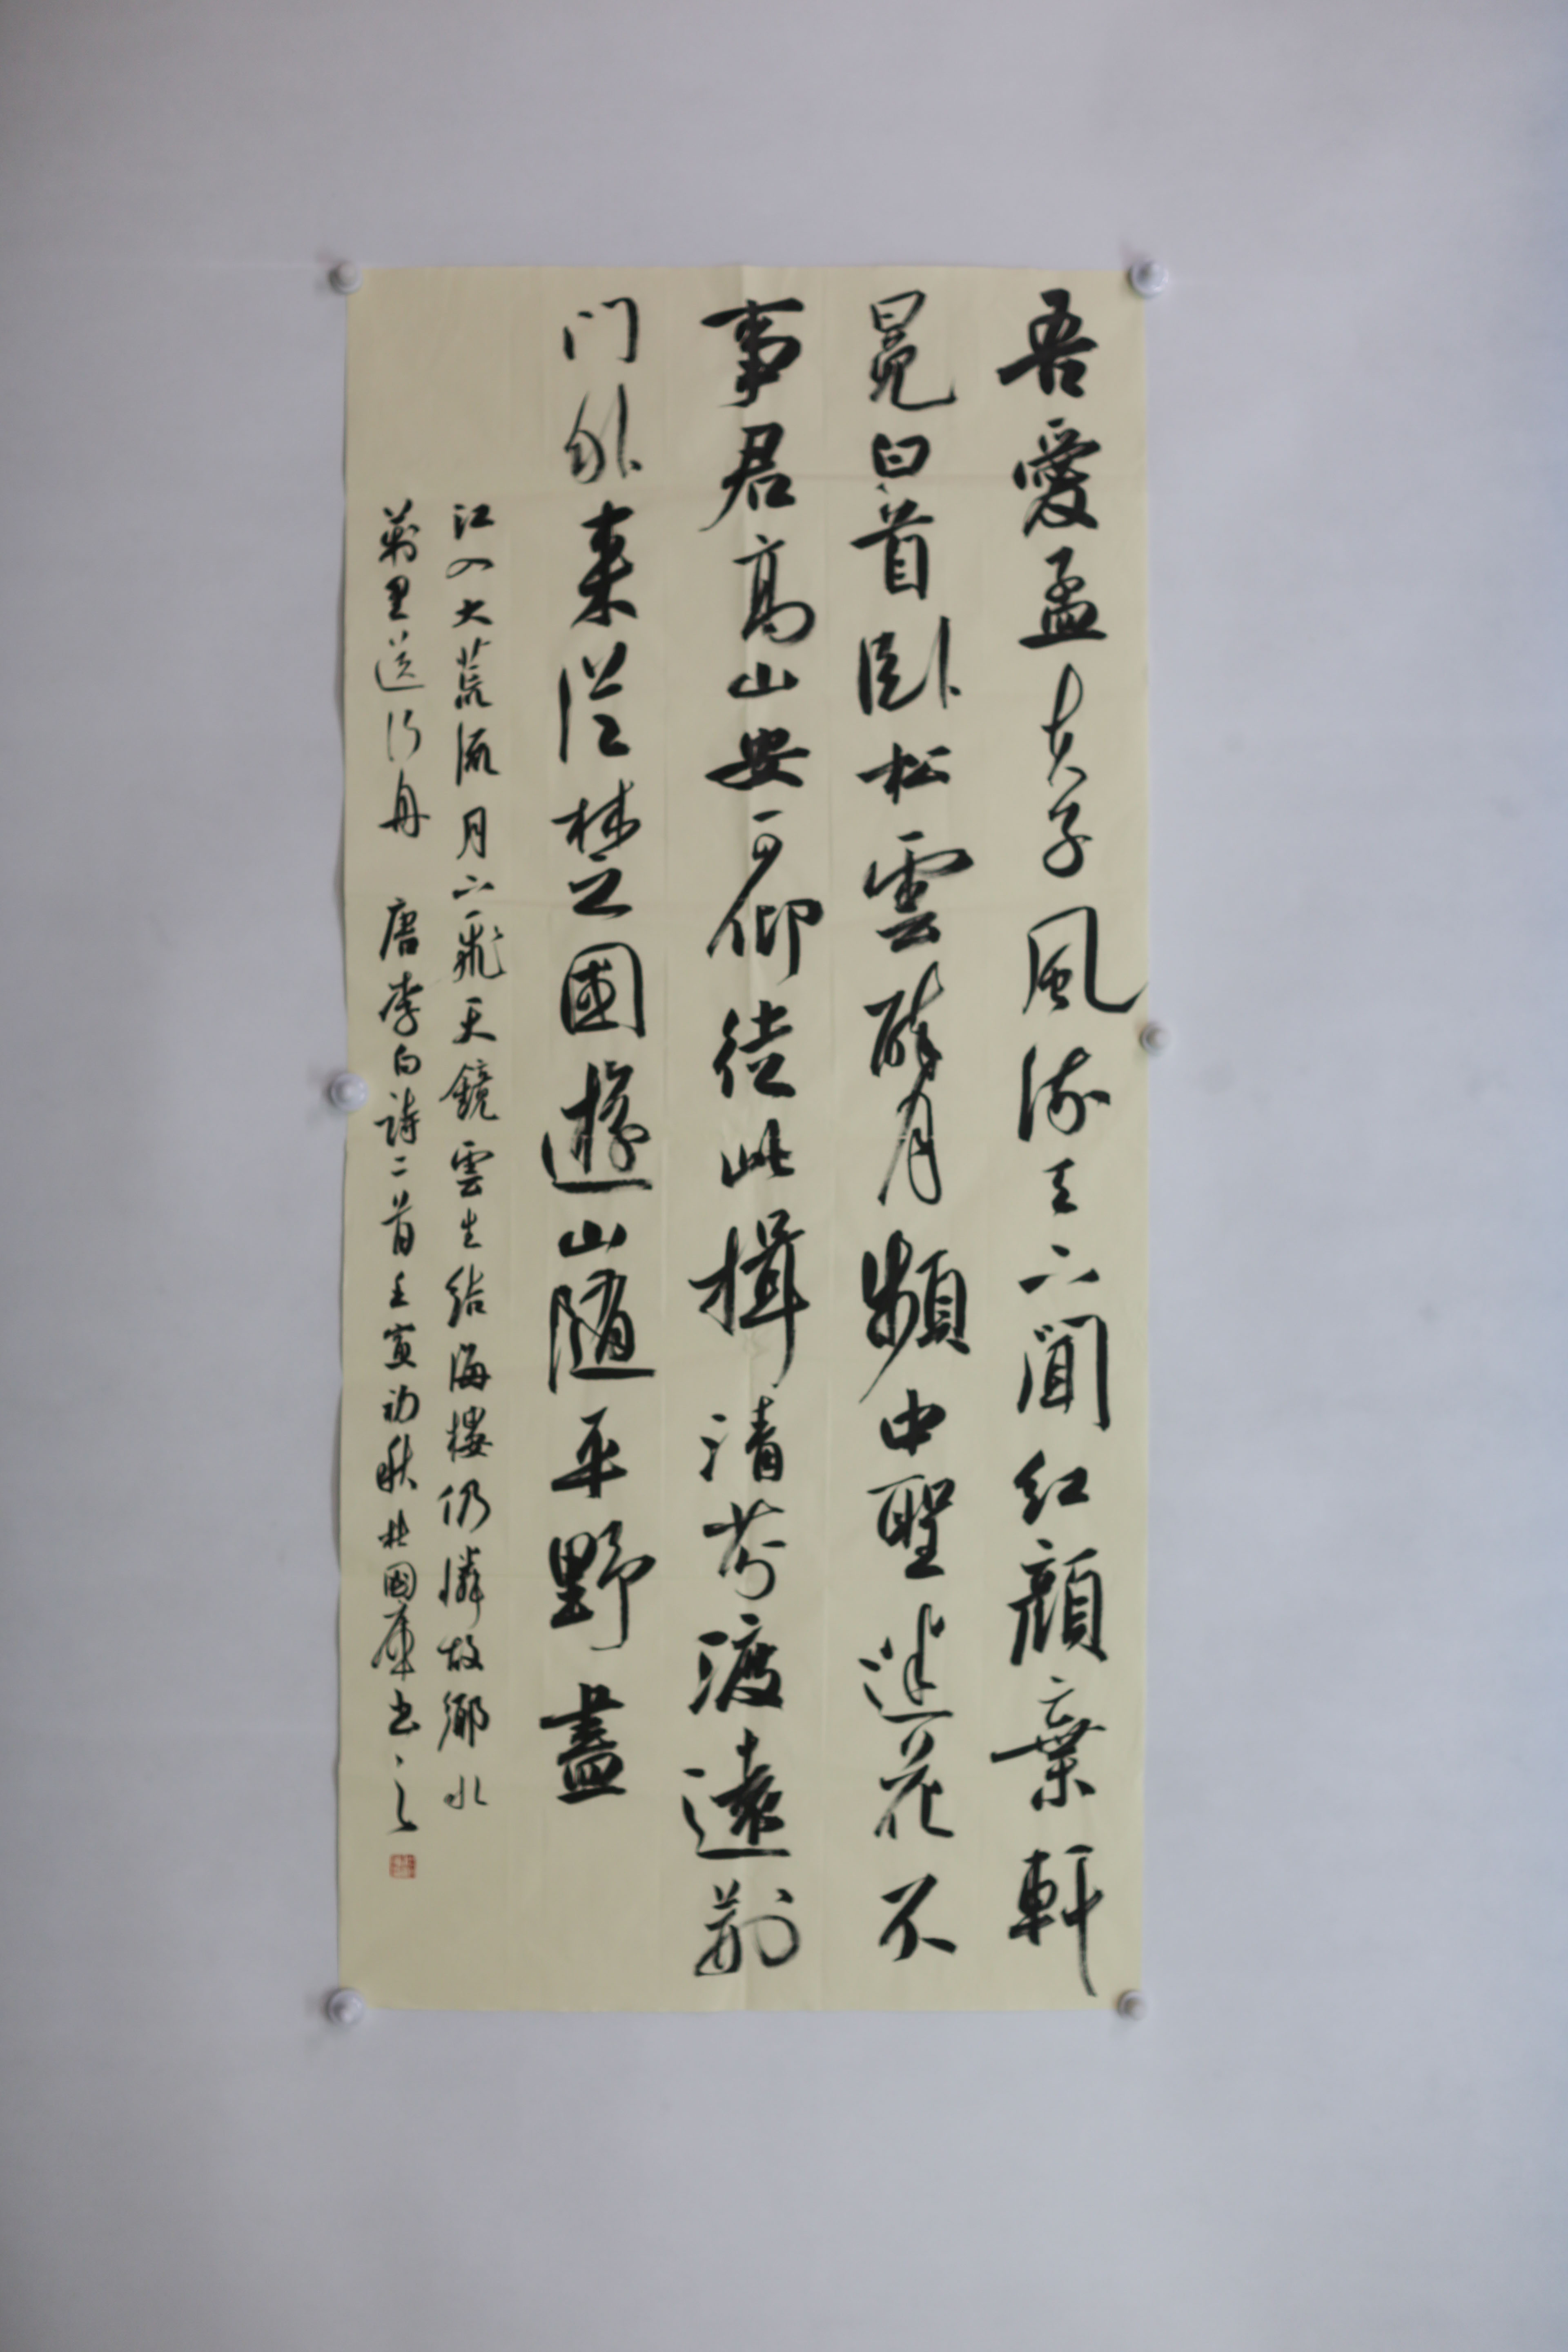 吾愛孟夫子風流天下聞紅顏棄軒
冕白首臥松雲醉月頻中聖迷花不
事君高山安可仰徒此揖清芬渡遠荆
门外来從楚國遊山隨平野盡
江入大荒流月下飛天鏡雲生結海樓仍憐故鄉水
萬里送行舟 唐李白詩二首壬寅初秋杜國庫书之